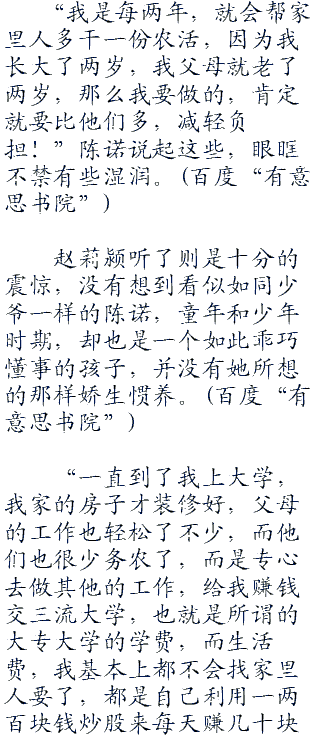 “我是每两年，就会帮家
里人多干一份农活，因为我
长大了两岁，我父母就老了
两岁，那么我要做的，肯定
就要比他们多，减轻负
担！”陈诺说起这些，眼眶
不禁有些湿润。(百度“有意
思书院”)
赵莉颍听了则是十分的
震惊，没有想到看似如同少
爷一样的陈诺，童年和少年
时期，却也是一个如此乖巧
懂事的孩子，并没有她所想
的那样娇生惯养。(百度“有
意思书院”)
“一直到了我上大学，
我家的房子才装修好，父母
的工作也轻松了不少，而他
们也很少务农了，而是专心
去做其他的工作，给我赚钱
交三流大学，也就是所谓的
大专大学的学费，而生活
费，我基本上都不会找家里
人要了，都是自己利用一两
百块钱炒股来每天赚几十块